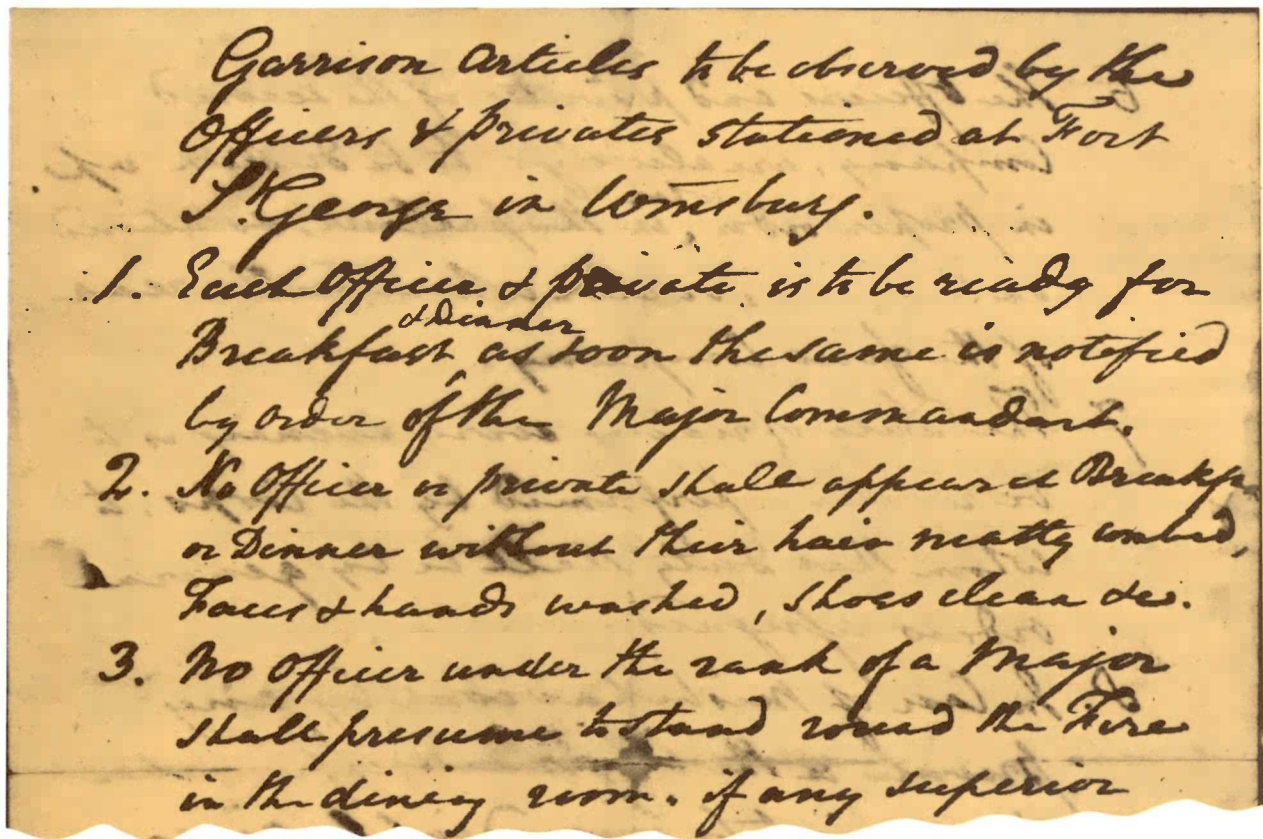 Garrison Articles to be observed by the
Officers & privates stationed at Fort
St. George in Wmsburg.
1. Each Officer & private is to be ready for
& Dinner
Breakfast ^ as soon the same is notified
by order of the Major Commandant.
2. No Officer or private shall appear at Breakfa
or Dinner without their hair neatly combed,
Faces & hands washed, shoes clean &c.
3. No Officer under the rank of a Major
shall presume to stand round the Fire
in the dining room. if any superior